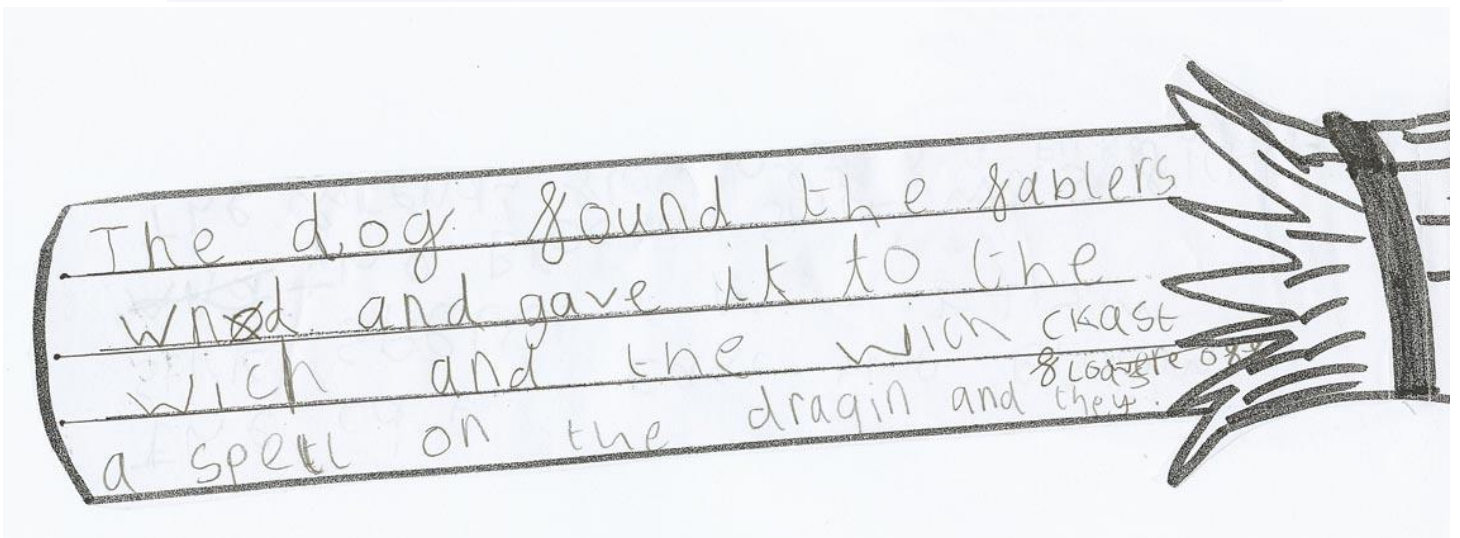 The dog found the fablers
wnd and gave it to the
wich and the wich ckast
a spell on the dragin and they
off